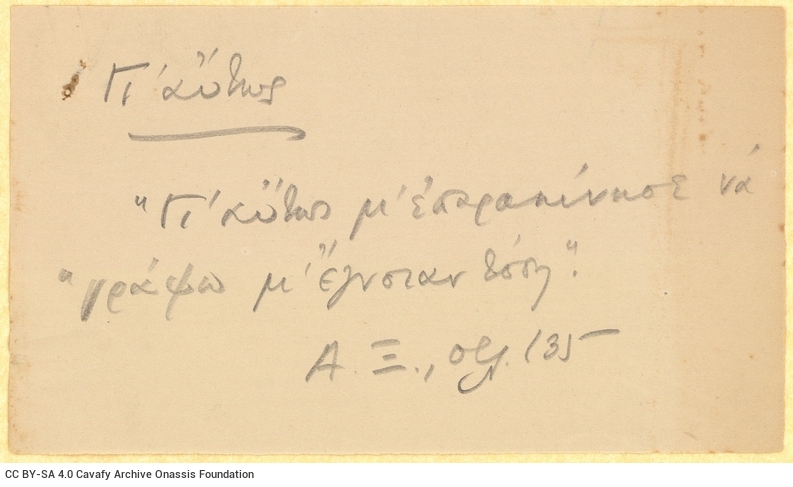 Γι' αύτως
"Γι' αύτως μ' επαρακίνησε νά
"γράψω μ' έγνοιαν τόση".
Α. Ξ., σελ. 135
CC BY-SA 4.0 Cavafy Archive Onassis Foundation